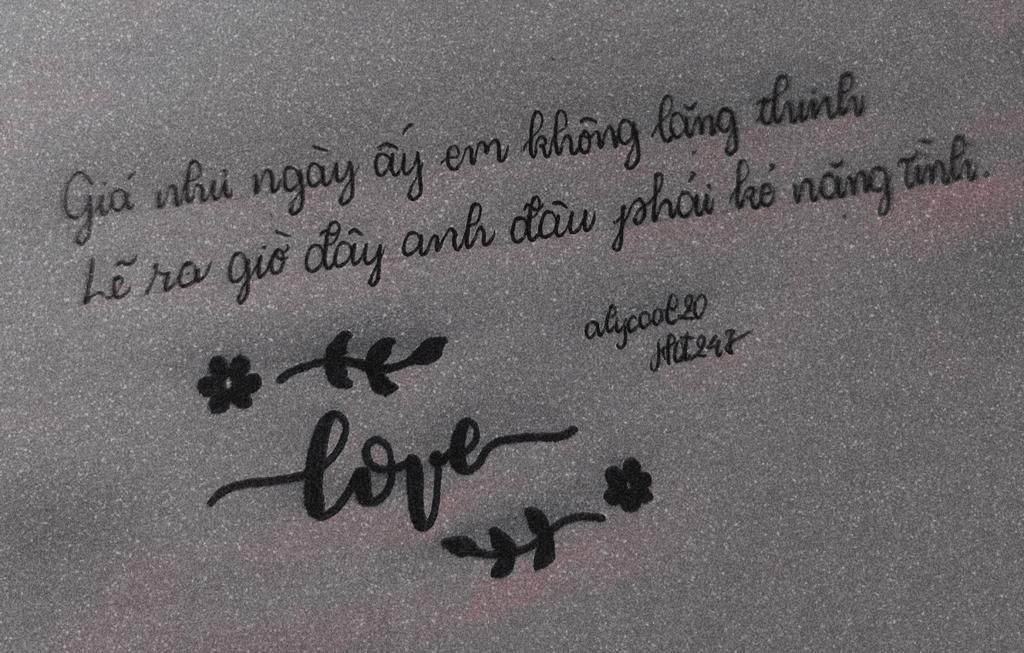 Giá như ngày ấy em không lặng thinh
Lẽ ra giờ đây anh đâu phải kẻ nặng tình.
alycool20
love